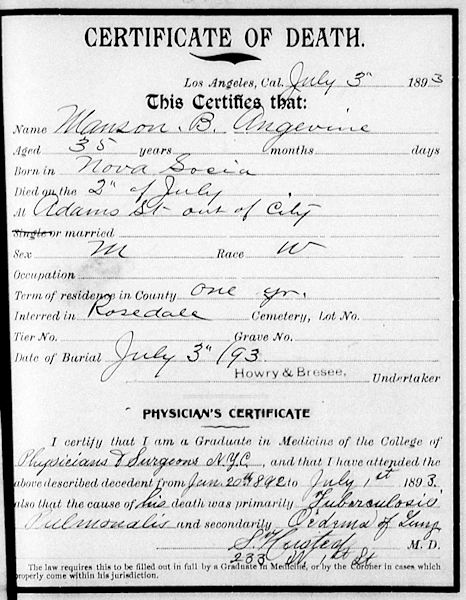 CERTIFICATE OF DEATH.
Los Angeles, Cal. July 3" 1893
This Certifies that:
Name Manson. B. Angevine
Aged 35 years months days
Born in Nova Socia
Died on the 2" of July
At Adams St out of City
Single or married
Sex M Race W
Occupation
Term of residence in County one yr.
Interred in Rosedale Cemetery, Lot No.
Tier No. Grave No.
Date of Burial July 3" /93
Howry & Bresee, Undertaker
PHYSICIAN'S CERTIFICATE
I certify that I am a Graduate in Medicine of the College of
Physicians & Surgeons N.Y.C., and that I have attended the
above described decedent from Jan. 20th 1892 to July 1st 1893.
also that the cause of his death was primarily Tuberculosis
Pulmonalis and secondarily Oedema of Lung
S. M. D.
233 1st St
The law requires this to be filled out in full by a Graduate in Medicine, or by the Coroner in cases which
properly come within his jurisdiction.